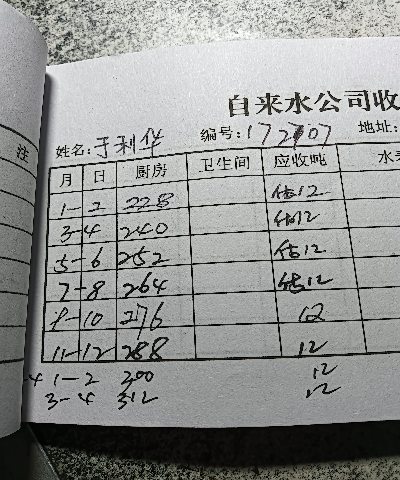 自来水公司收
姓名:于利华 编号:172707 地址:
注
月 日 厨房 卫生间 应收吨 水
1-2 228 估12
3-4 240 估12
5-6 252 估12
7-8 264 估12
9-10 276 12
11-12 288 12
4 1-2 300 12
3-4 312 12